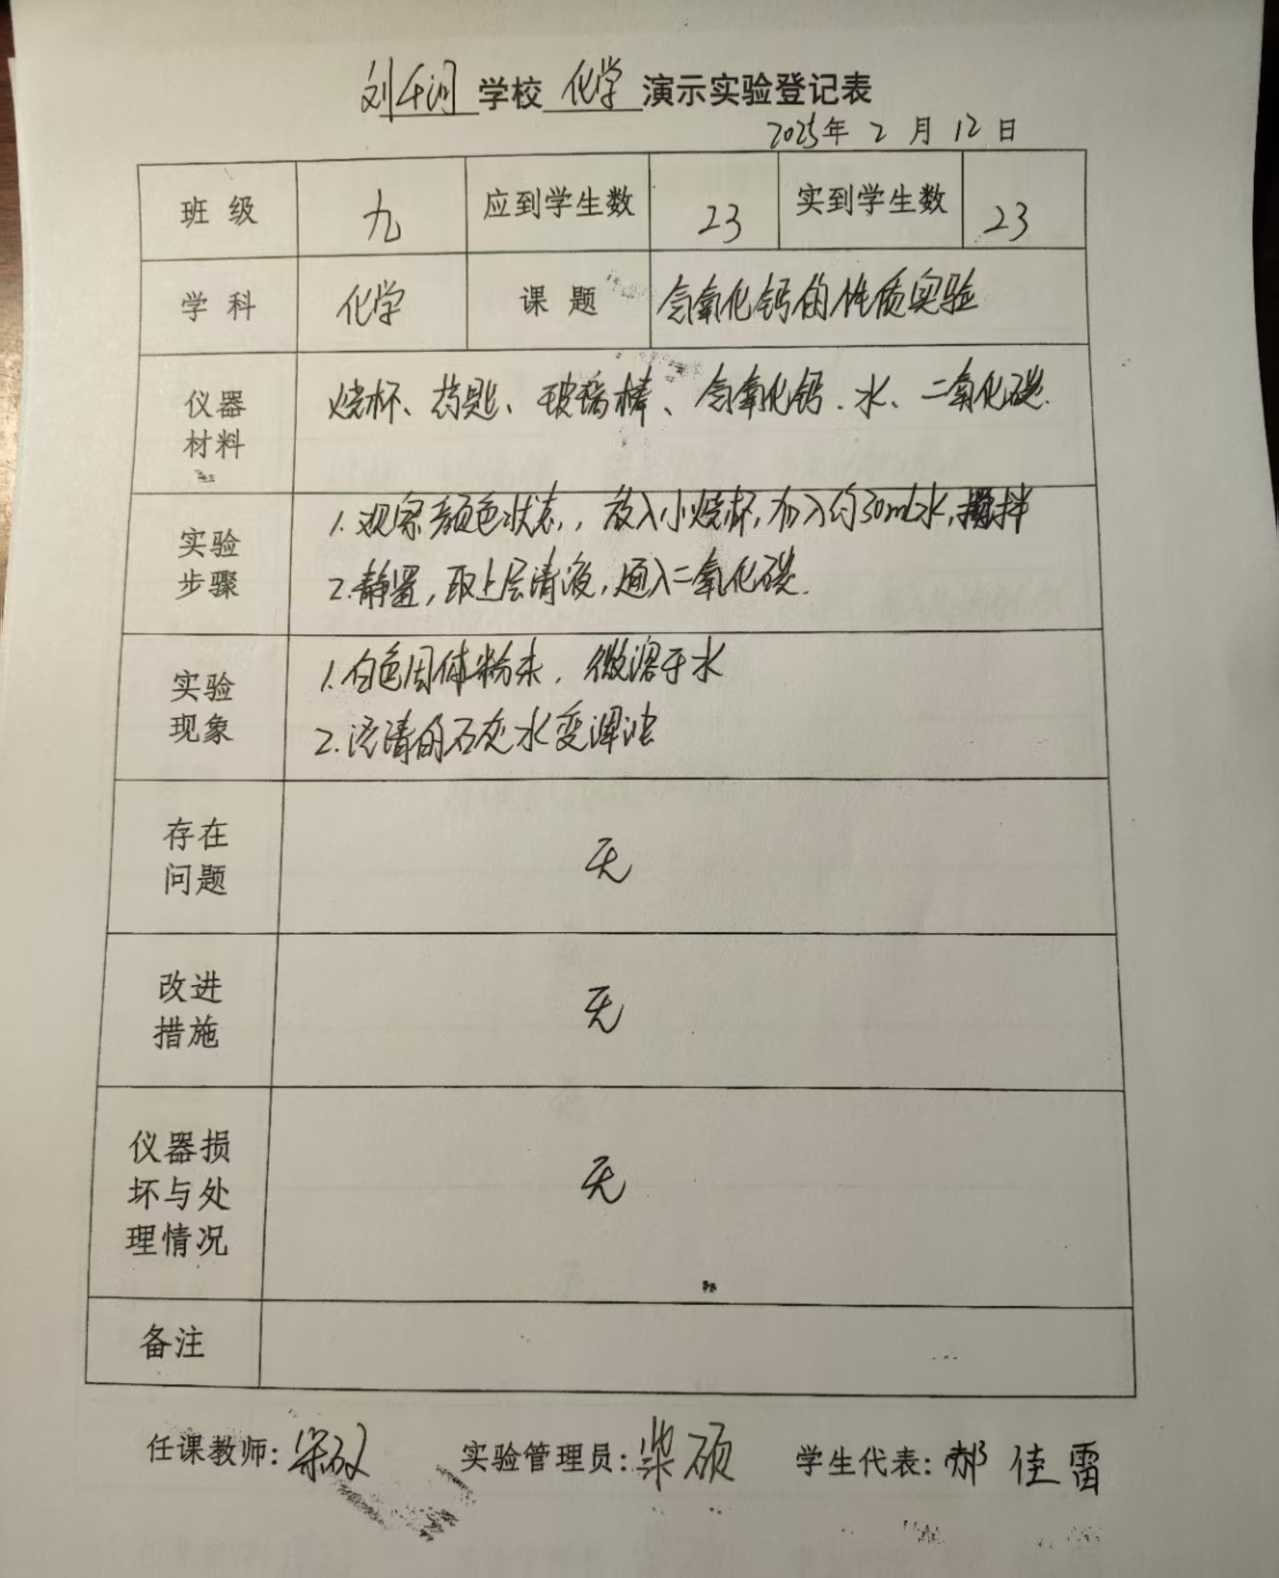 刘千河学校 化学 演示实验登记表
2025年 2 月 12 日
班 级 九 应到学生数 23 实到学生数 23
学 科 化学 课 题 氢氧化钙的性质实验
仪器材料 烧杯、药匙、玻璃棒、氢氧化钙、水、二氧化碳.
实验步骤 1.观察颜色状态,,放入小烧杯,加入约30ml水,搅拌
2.静置,取上层清液,通入二氧化碳.
实验现象 1.白色固体粉末,微溶于水
2.澄清的石灰水变浑浊
存在问题 无
改进措施 无
仪器损坏与处理情况 无
备注
任课教师: 实验管理员:柴硕 学生代表:郝佳雷